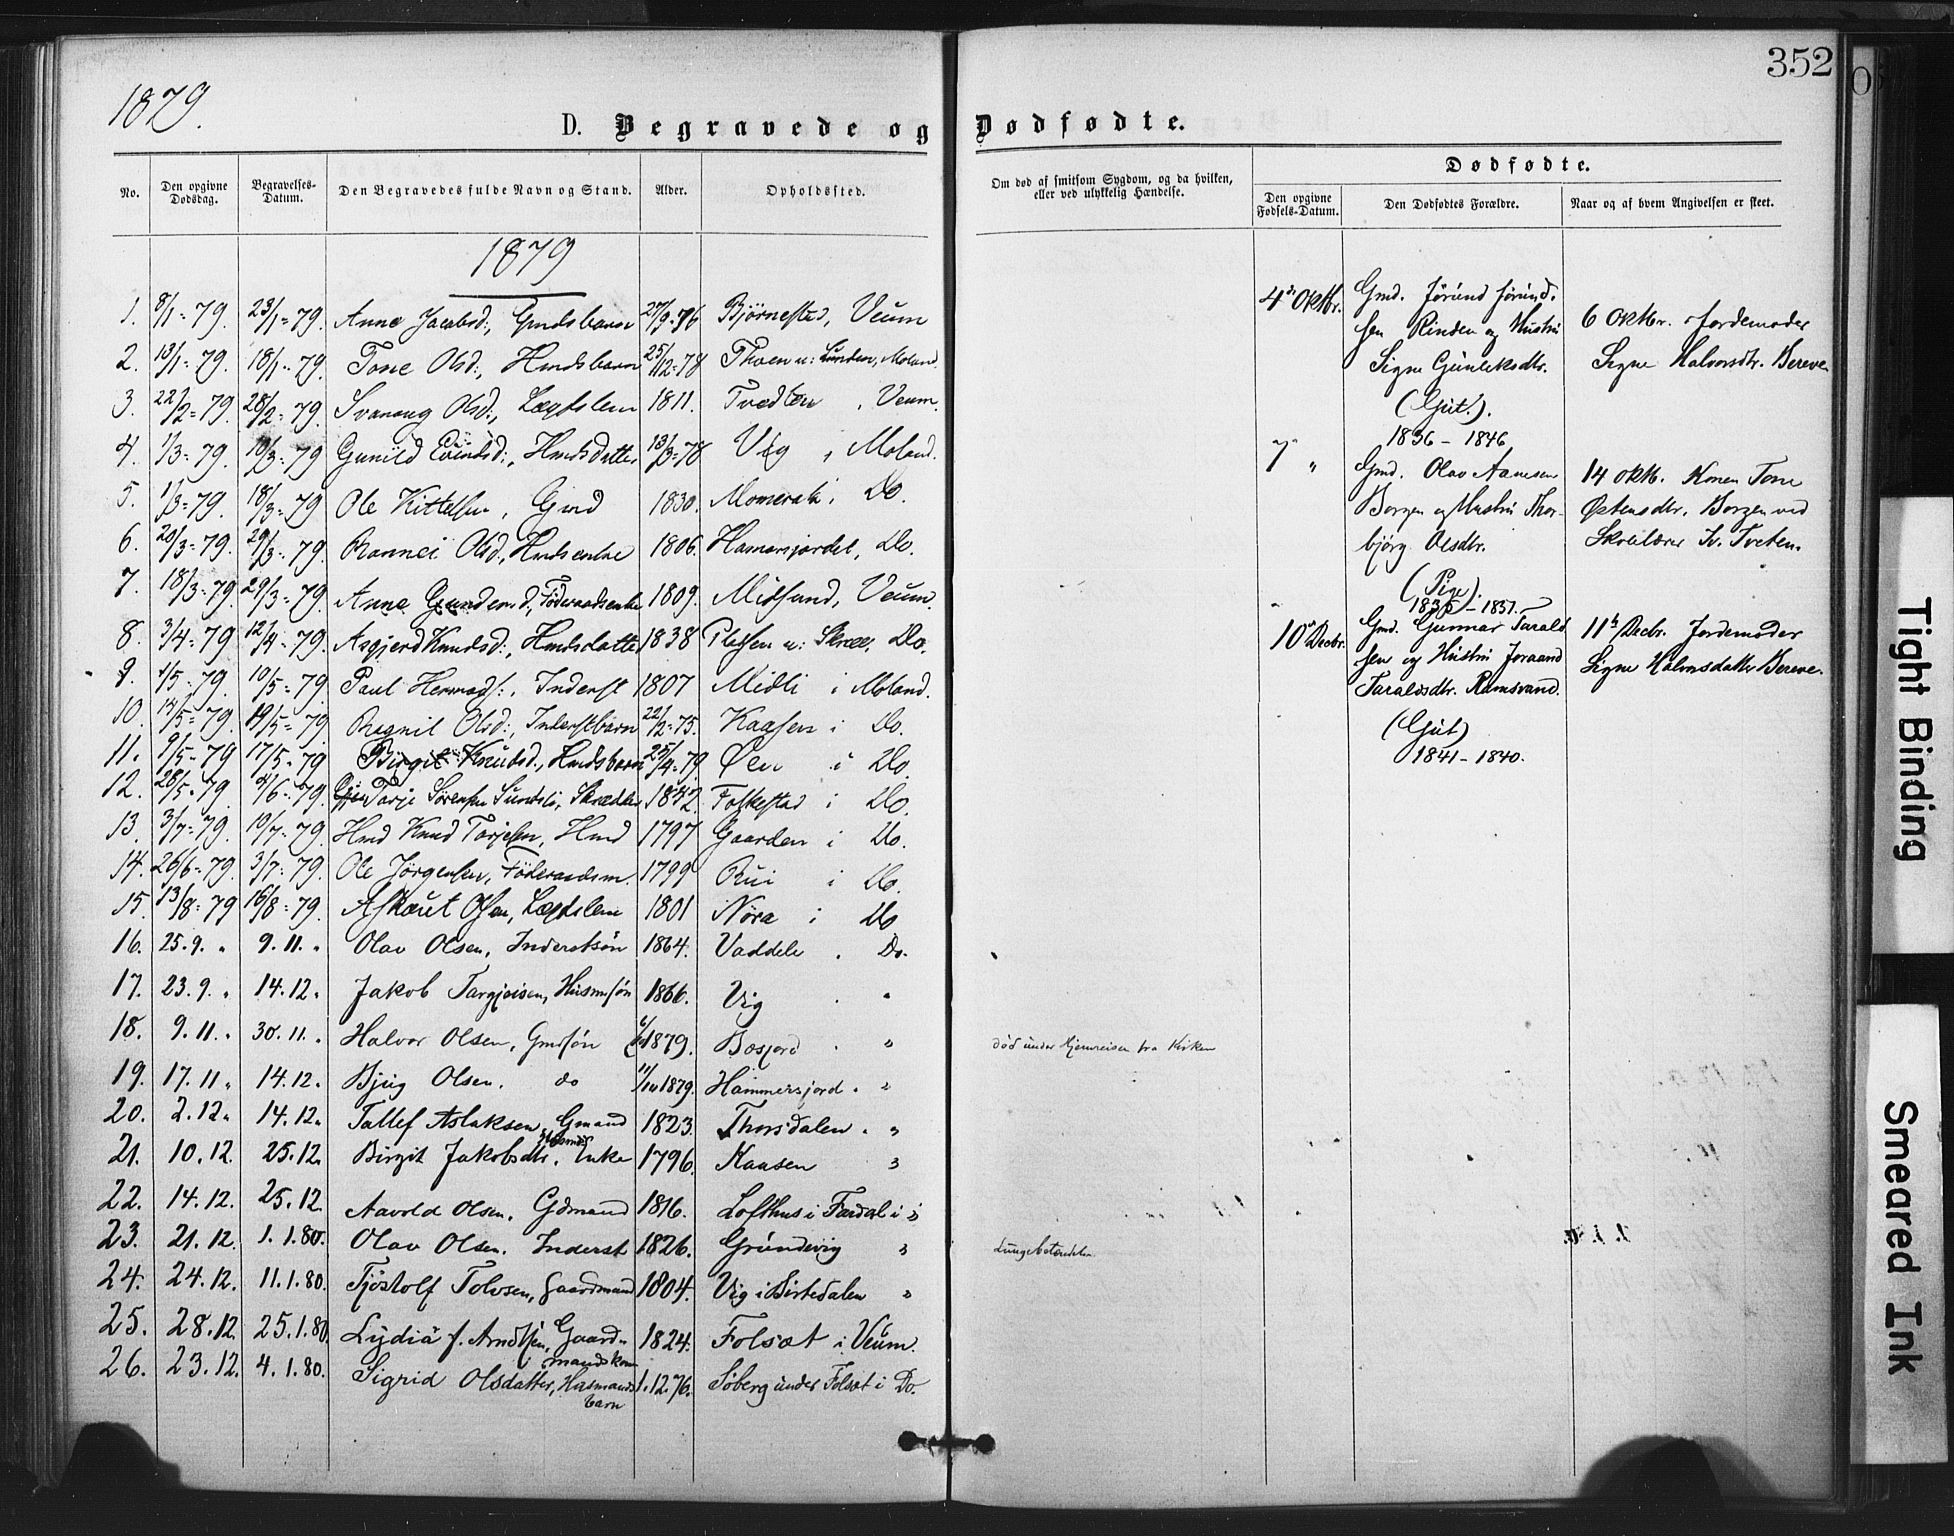 1879.
352
D. Begravede og Dødfødte.
No. Den opgivne Dødsdag. Begravelses-Datum. Den Begravedes fulde Navn og Stand. Alder. Opholdssted.
Om død af smitsom Sygdom, og da hvilken, eller ved ulykkelig Hændelse.
Dødfødte.
Den opgivne Fødsels-Datum. Den Dødfødtes Forældre. Naar og af hvem Angivelsen er skeet.
1879
1. 8/1=79. 23/1=79. Anne Jacobsd:, Gmdsbarn 27/9=76 Bjørnestad, Veum
2. 13/1=79. 18/1=79. Tone Olsd:, Hmdsbarn 25/12=78 Thoen u: Lunden, Moland.
3. 22/2=79. 28/2=79. Svanaug Olsd:, Lægdslem 1811. Tvedten, Veum.
4. 1/3=79. 10/3=79. Gunild Eivindsd:, Hmdsdatter 13/3=78 Vig, Moland.
5. 1/3=79. 18/3=79 Ole Kittelsen, Gmd 1830. Momrak i Do.
6. 20/3=79. 29/3=79. Rannei Olsd, Hmdsenke 1806. Hamarsjordet, Do.
7. 18/3=79. 29/3=79. Anne Føderaadsenke 1809. Midsund, Veum.
8. 3/4=79 12/4=79. Asgjerd Knudsd:, Hmdsdatter 1838 Pladsen u: Skree, Do.
9. 1/5=79. 10/5=79 Paul Inderst 1807 Midli i Moland.
10. 14/5=79. 19/5=79 Ragnil Olsd:, Inderstbarn 22/2=75. Kaasen i Do.
11. 9/5=79 17/5=79 Birgit Knudsd., Hmdsbarn 25/4=79 Øen i Do.
12. 28/5=79 4/6=79. Tarje Sørensen Sundsli, Skrædder Folkestad i Do.
13. 3/7=79. 10/7=79. Hmd Knud Tarjesen, Hmd 1797 Gaarden i Do.
14. 26/6=79. 3/7=79. Ole Jørgensen, Føderaadsm. 1799 Rui i Do.
15. 13/8=79 16/8=79. Askout Olsen, Lægdslem 1801 Nøra i Do
16. 25.9. " 9.11. " Olav Olsen, Inderstsøn 1864. Vaddeli. Do.
17. 23.9. " 14.12 " Jakob Targjeisen, Husmsøn 1866. Vig . "
18. 9.11. " 30.11. " Halvor Olsen, Gmdsøn 1879. Bosjord . " død under Hjemreisen fra Kirken
19. 17.11 " 14.12 " Bjug Olsen. do 11/10 1879. Hammersjord. "
20. 2.12 " 14.12 " Tallef Aslaksen, Gmand 1823. Thorsdalen. "
21. 10.12. 25.12. Birgit Jakobsdtr. Husmds Enke 1796. Kaasen "
22. 14.12. 25.12. Aavold Olsen. Gdmand 1816. Lofthus i Fardal i "
23. 21.12. 1.1.80. Olav Olsen. Inderst 1826. Grundevig " Lungebetændelse.
24. 24.12. 11.1.80. Tjostolf Tolvsen, Gaardmand 1804. Vig i Birtedalen "
25. 28.12. 25.1.80. Lydia f. Arndtsen, Gaardmandskone 1824. Folsæt i Veum.
26. 23.12. 4.1.80. Sigrid Olsdatter, Husmandsbarn 1.12.76. Søberg under Folsæt i Do.
4de Oktbr. Gmd. Jørund Jørund-
sen Rinden og Hustru
Signe Gunleiksdtr.
(Gut).
1836 – 1846
6 Oktbr. Jordemoder
Signe Halvorsdtr. Bereve.
7 " Gmd. Olav Aanesen
Borgen og Hustru Thor-
bjørg Olsdtr.
(Pige).
1835 – 1837.
14 Oktb. Konen Tone
Østensdtr. Borgen ved
Skolelærer Tveten.
10de Decbr. Gmd. Gunnar Tarald
sen og Hustru Joraand
Taraldsdtr. Ramsvand.
(Gut)
1841 – 1840.
11te Decbr. Jordemoder
Signe Halvorsdatter Bereve.
Tight Binding
Smeared Ink